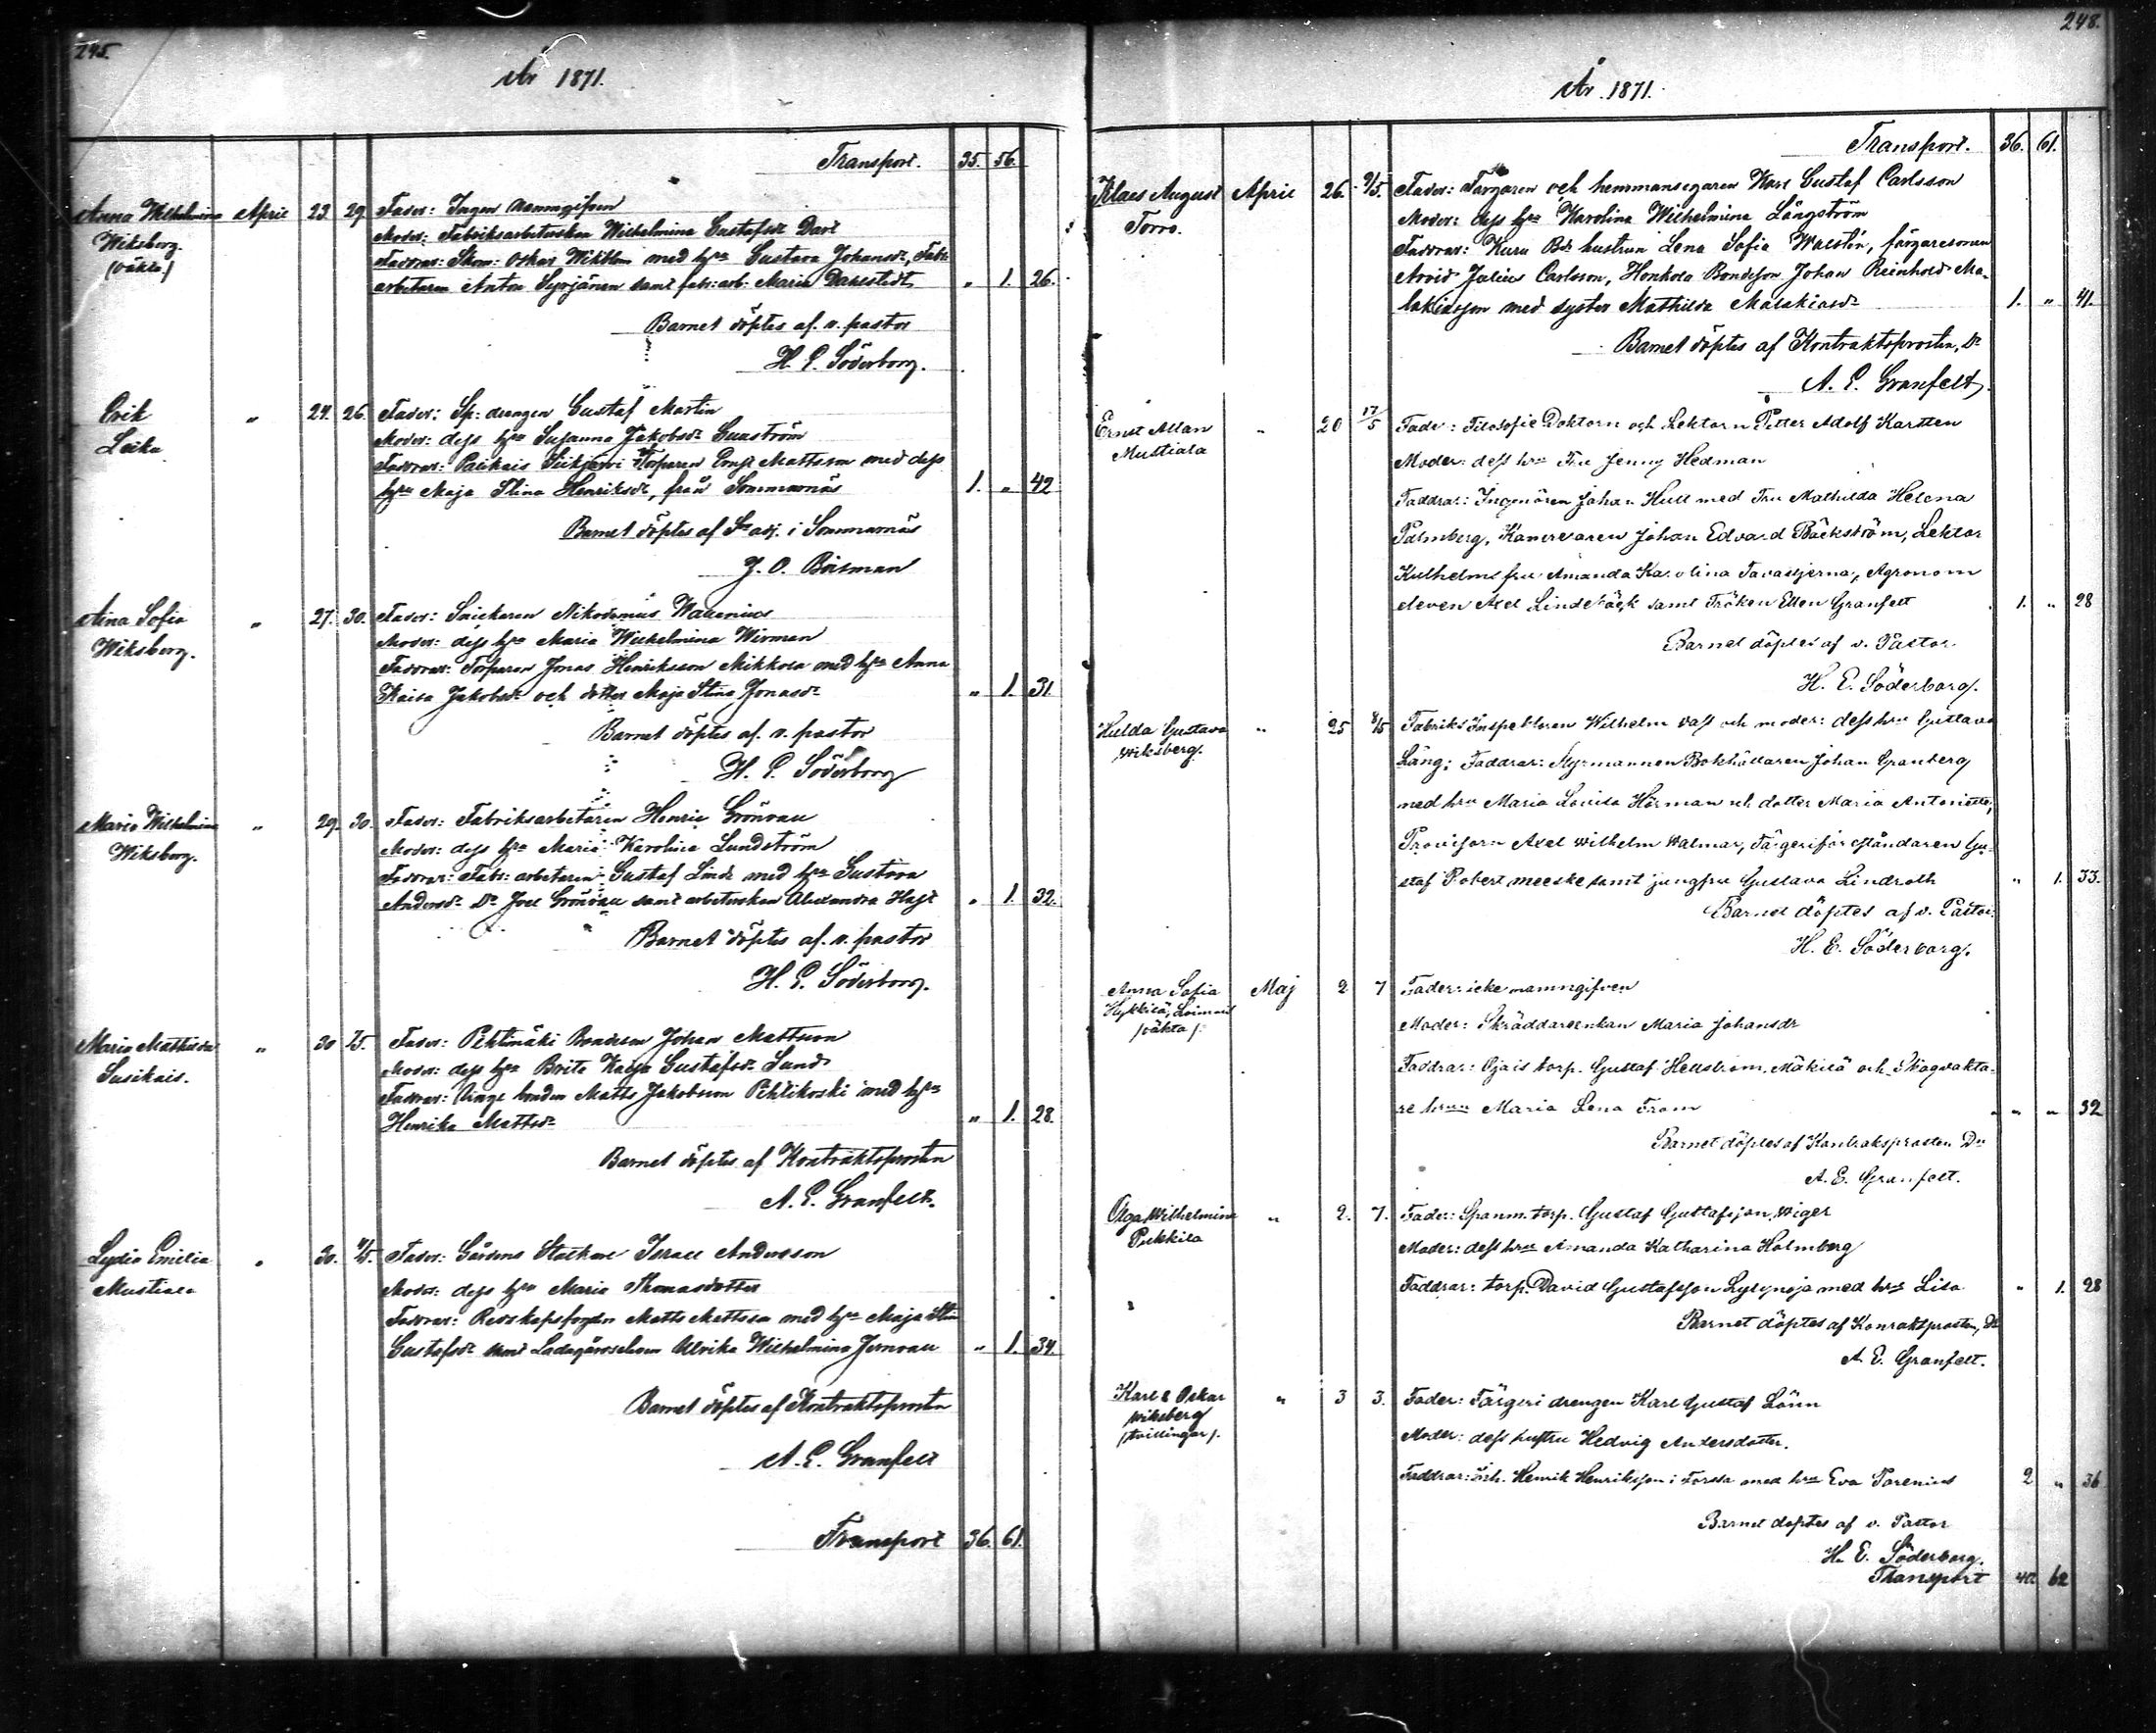 245.
År 1871.
Transport. 35. 56.
Anna Wilhelmina April 23 29 Fader: Ingen namngifven
Wiksberg. Moder: Fabriksarbeterskan Wilhelmina Gustafsdr
(oäkta) Faddrar: Skom: Oskar Wikblom med hru Gustava Johansdr, Fabr:
arbetaren Anton Syrjänen samt fabr: arb: Maria Dahlstedt " 1. 26.
Barnet döptes af v. pastor
H. E. Söderborg.
Erik " 24. 26. Fader: Sp: drengen Gustaf Martin
Leika Moder: dess hru Susanna Jakobsdr
Faddrar: Torparen Ernst Mattsson med dess
hru Maja Stina Henriksdr, från Sommarnäs 1. " 42
Barnet döptes af adj. i Sommarnäs
J. O. Boisman
Aina Sofia " 27. 30. Fader: Snickaren Nikodemus Wallenius
Wiksberg. Moder: dess hru Maria Wilhelmina Wirman
Faddrar: Torparen Jonas Henriksson Mikkola med hru Anna
Kaisa Jakobsdr och dotter Maja Stina Jonasdr " 1. 31.
Barnet döptes af. v. pastor
H. E. Söderborg
Maria Wilhelmina " 29. 30. Fader: Fabriksarbetaren Henric Grönvall
Wiksberg. Moder: dess hru Maria Karolina Lundström
Faddrar: Fabr: arbetaren Gustaf Lind med hru Gustava
Andersdr Do Joel Grönvall samt arbeterskan Alexandra " 1. 32.
Barnet döptes af. v. pastor
H. E. Söderborg.
Maria Mathilda " 30 1/5. Fader: Pihtimäki Bondeson Johan Mattsson
Susikais. Moder: dess hru Brita Kajsa Gustafsdr Lund
Faddrar: Unge bonden Matts Jakobsson Pihlikoski med hru
Henrika Mattsdr " 1. 28.
Barnet döptes af Kontraktsprosten
A. E. Granfelt.
Lydia Emilia " 30. Fader: Gårdens Statkarl Israel Andersson
Mustiala Moder: dess hru Maria Thomasdotter
Faddrar: Redskapsfogden Matts Mattsson med hru Maja Stina
Gustafsdr samt Ladugårdseleven Ulrika Wilhelmina Jernvall " 1. 34.
Barnet döptes af Kontraktsprosten
A. E. Granfelt
Transport 36. 61.
248.
År 1871.
Transport. 36. 61.
Klaes August April 26. 9/5. Fader: Färgaren och hemmansegaren Karl Gustaf Carlsson
Torro. Moder: dess hru Karolina Wilhelmina Långström
Faddrar: Kuru Bds hustrun Lena Sofia Walstén, färgaresonen
Arvid Julius Carlsson, Honkola Bondeson Johan Reinhold Ma-
lakiasson med syster Mathilda Malakiasdr 1. " 41.
Barnet döptes af Kontraktsprosten, Dr
A. E. Granfelt.
Ernst Allan " 20 17/5 Fader: Filosofie Doktorn och Lektorn Petter Adolf Karsten
Mustiala Moder: dess hru Fru Jenny Hedman
Faddrar: Ingeniören Johan Hull med Fru Mathilda Helena
Palmberg, Kamreraren Johan Edvard Bäckström, Lektor
Kulhelms fru Amanda Karolina Tavastjerna, Agronom
eleven Axel Lindebäck samt Fröken Ellen Granfelt 1. " 28
Barnet döptes af v. Pastor.
H. E. Söderborg.
Hulda Gustava " 25 8/5 Fabriks Inspektoren Wilhelm Wass och moder: dess hru Gustava
Wiksberg. Lång; Faddrar: Styrmannen Bokhållaren Johan Granberg
med hru Maria Lovisa Hörman och dotter Maria Antoniette,
Provisorn Axel Wilhelm Walmar, Färgeriföreståndaren Gu-
staf Robert Meeske samt jungfru Gustava Lindroth " 1. 33.
Barnet döptes af v. Pastor.
H. E. Söderborg.
Anna Sofia Maj 2 7 Fader: icke namngifven
Hykkilä, Loimaa Moder: Skräddareenkan Maria Johansdr
/oäkta/. Faddrar: Ojais torp. Gustaf Hellström, Mäkilä och Skogvakta-
re hrun Maria Lena From " " 32
Barnet döptes af Kontraksprosten Dr
A. E. Granfelt.
Olga Wilhelmina " 2. 7. Fader: Spanm. torp. Gustaf Gustafsson Wiger
Pukkila Moder: dess hru Amanda Katharina Holmberg
Faddrar: torp. David Gustafsson Lyylynoja med hru Lisa " 1. 28
Barnet döptes af Konraktsprosten, Dr
A. E. Granfelt.
Karl & Oskar " 3 3. Fader: Färgeri drengen Karl Gustaf Lönn
Wiksberg Moder: dess hustru Hedvig Andersdotter.
/tvillingar/. Faddrar: Inh. Henrik Henriksson i Forssa med hru Eva Torenius 2 " 36
Barnet döptes af v. Pastor
H. E. Söderborg.
Transport 40 62